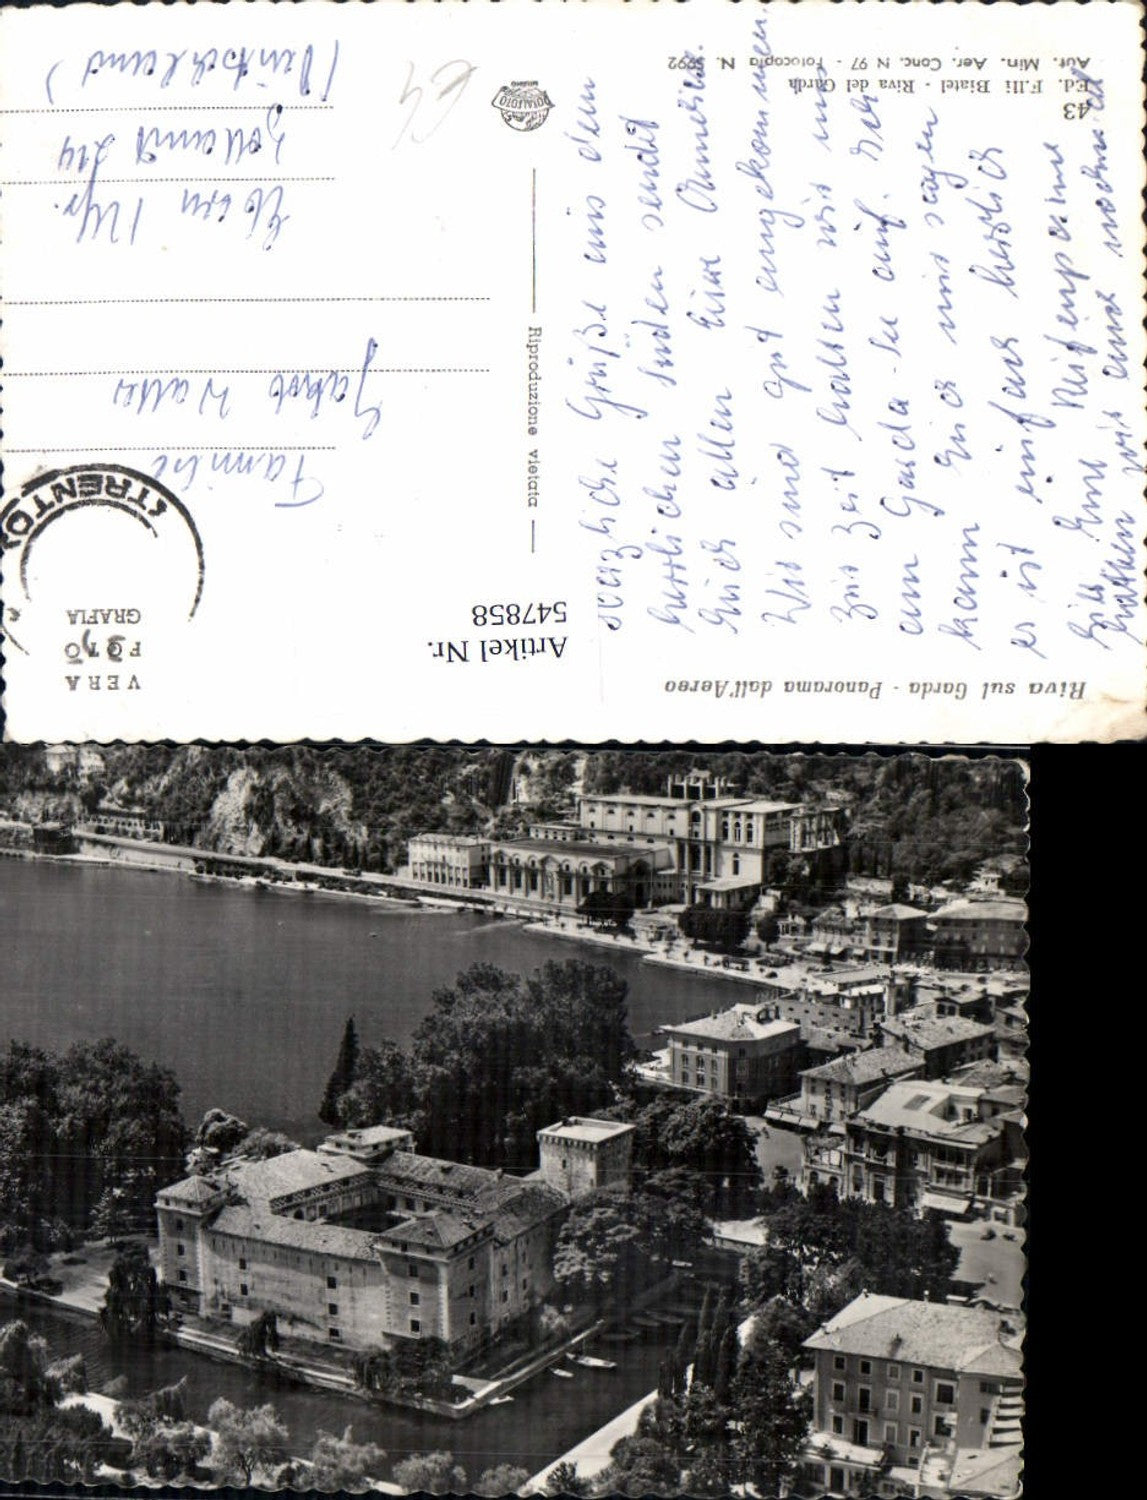 Riva sul Garda - Panorama dall'Aereo
Herzliche Grüße aus dem
herrlichen Süden sendet
Euch allen Eure Anneliese.
Wir sind gut angekommen.
Zur Zeit halten wir uns
am Garda-See auf. Ich
kann Euch nur sagen
es ist einfach herrlich
hier. Eine Reifenpanne
hatten wir auch
43
Ed. F.lli Biatel - Riva del Garda
Aut. Min. Aer. Conc. N 97 - Fotocopia N.
Riproduzione vietata
Artikel Nr.
547858
VERA
FOTO
GRAFIA
(TRENTO)
Familie
Jakob Walter
Eben
(Deutschland)
€4